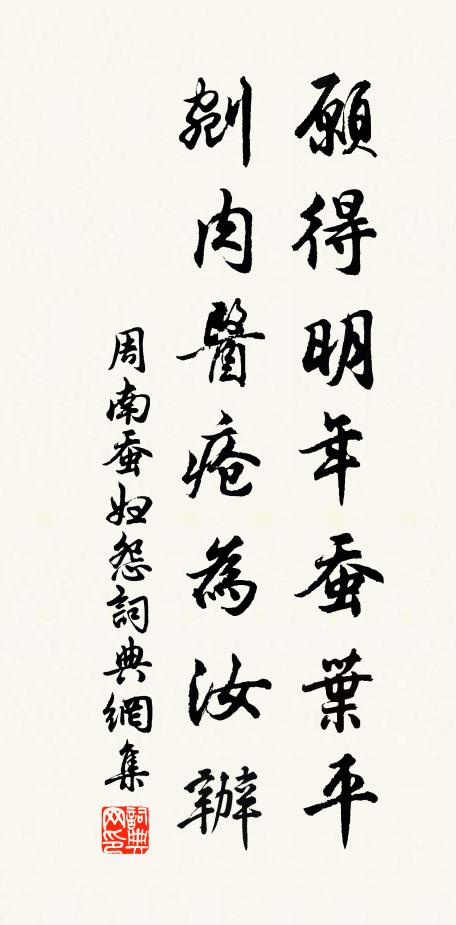 願得明年蚕葉平
剜肉醫瘡為汝辦
周南蚕妇怨詞典網集
詞典
网印